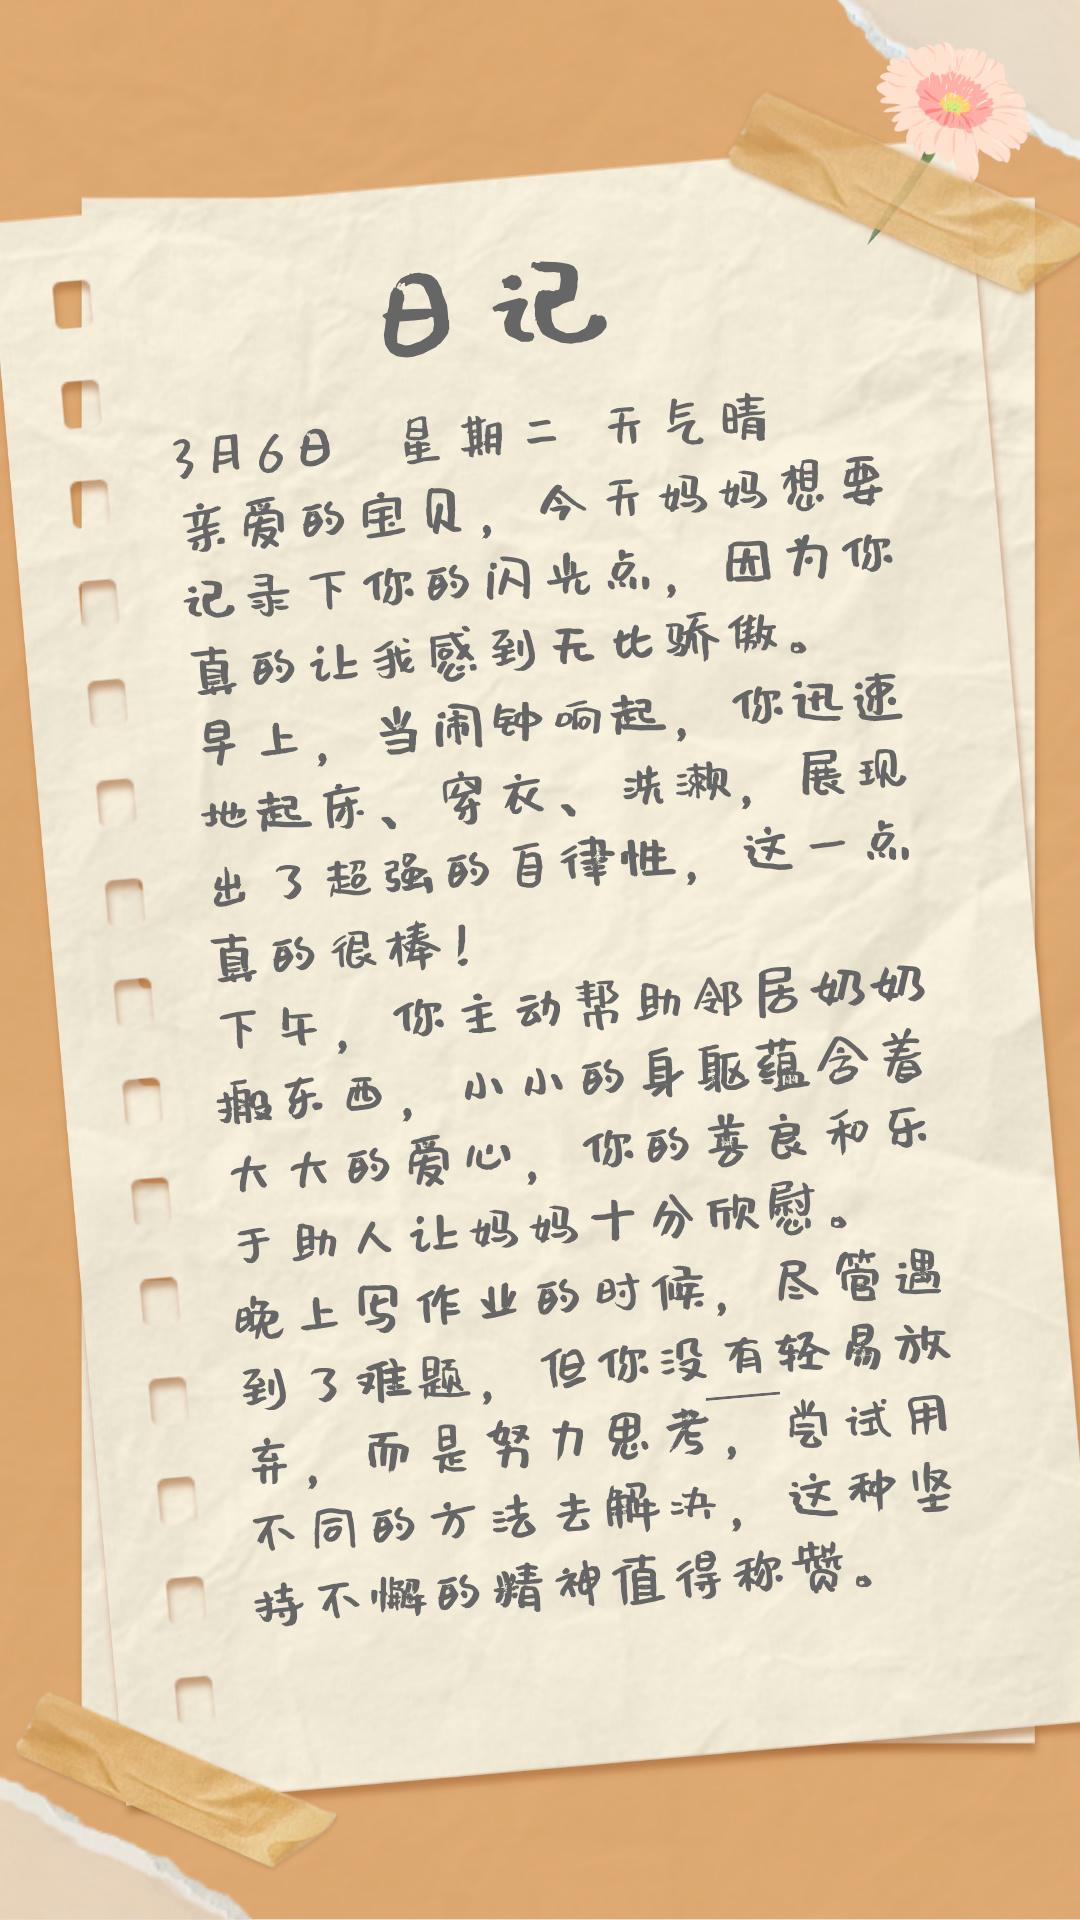 日记
3月6日 星期二 天气晴
亲爱的宝贝，今天妈妈想要
记录下你的闪光点，因为你
真的让我感到无比骄傲。
早上，当闹钟响起，你迅速
地起床、穿衣、洗漱，展现
出了超强的自律性，这一点
真的很棒！
下午，你主动帮助邻居奶奶
搬东西，小小的身躯蕴含着
大大的爱心，你的善良和乐
于助人让妈妈十分欣慰。
晚上写作业的时候，尽管遇
到了难题，但你没有轻易放
弃，而是努力思考，尝试用
不同的方法去解决，这种坚
持不懈的精神值得称赞。